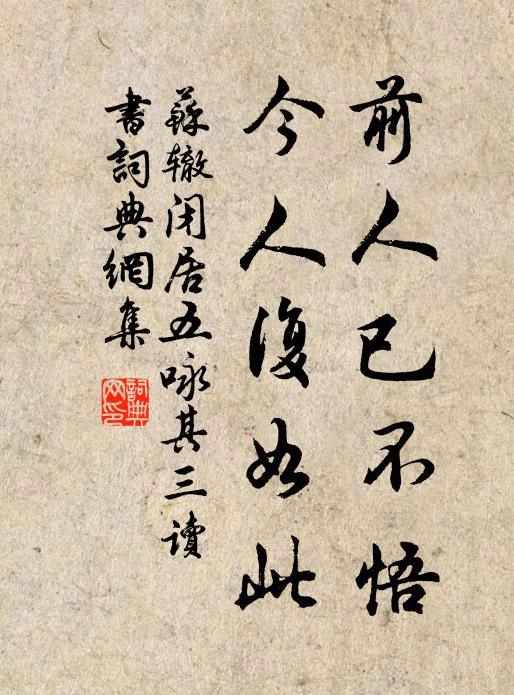 前人已不悟
今人復如此
蘇辙闭居五咏其三讀
書詞典網集
詞典网印